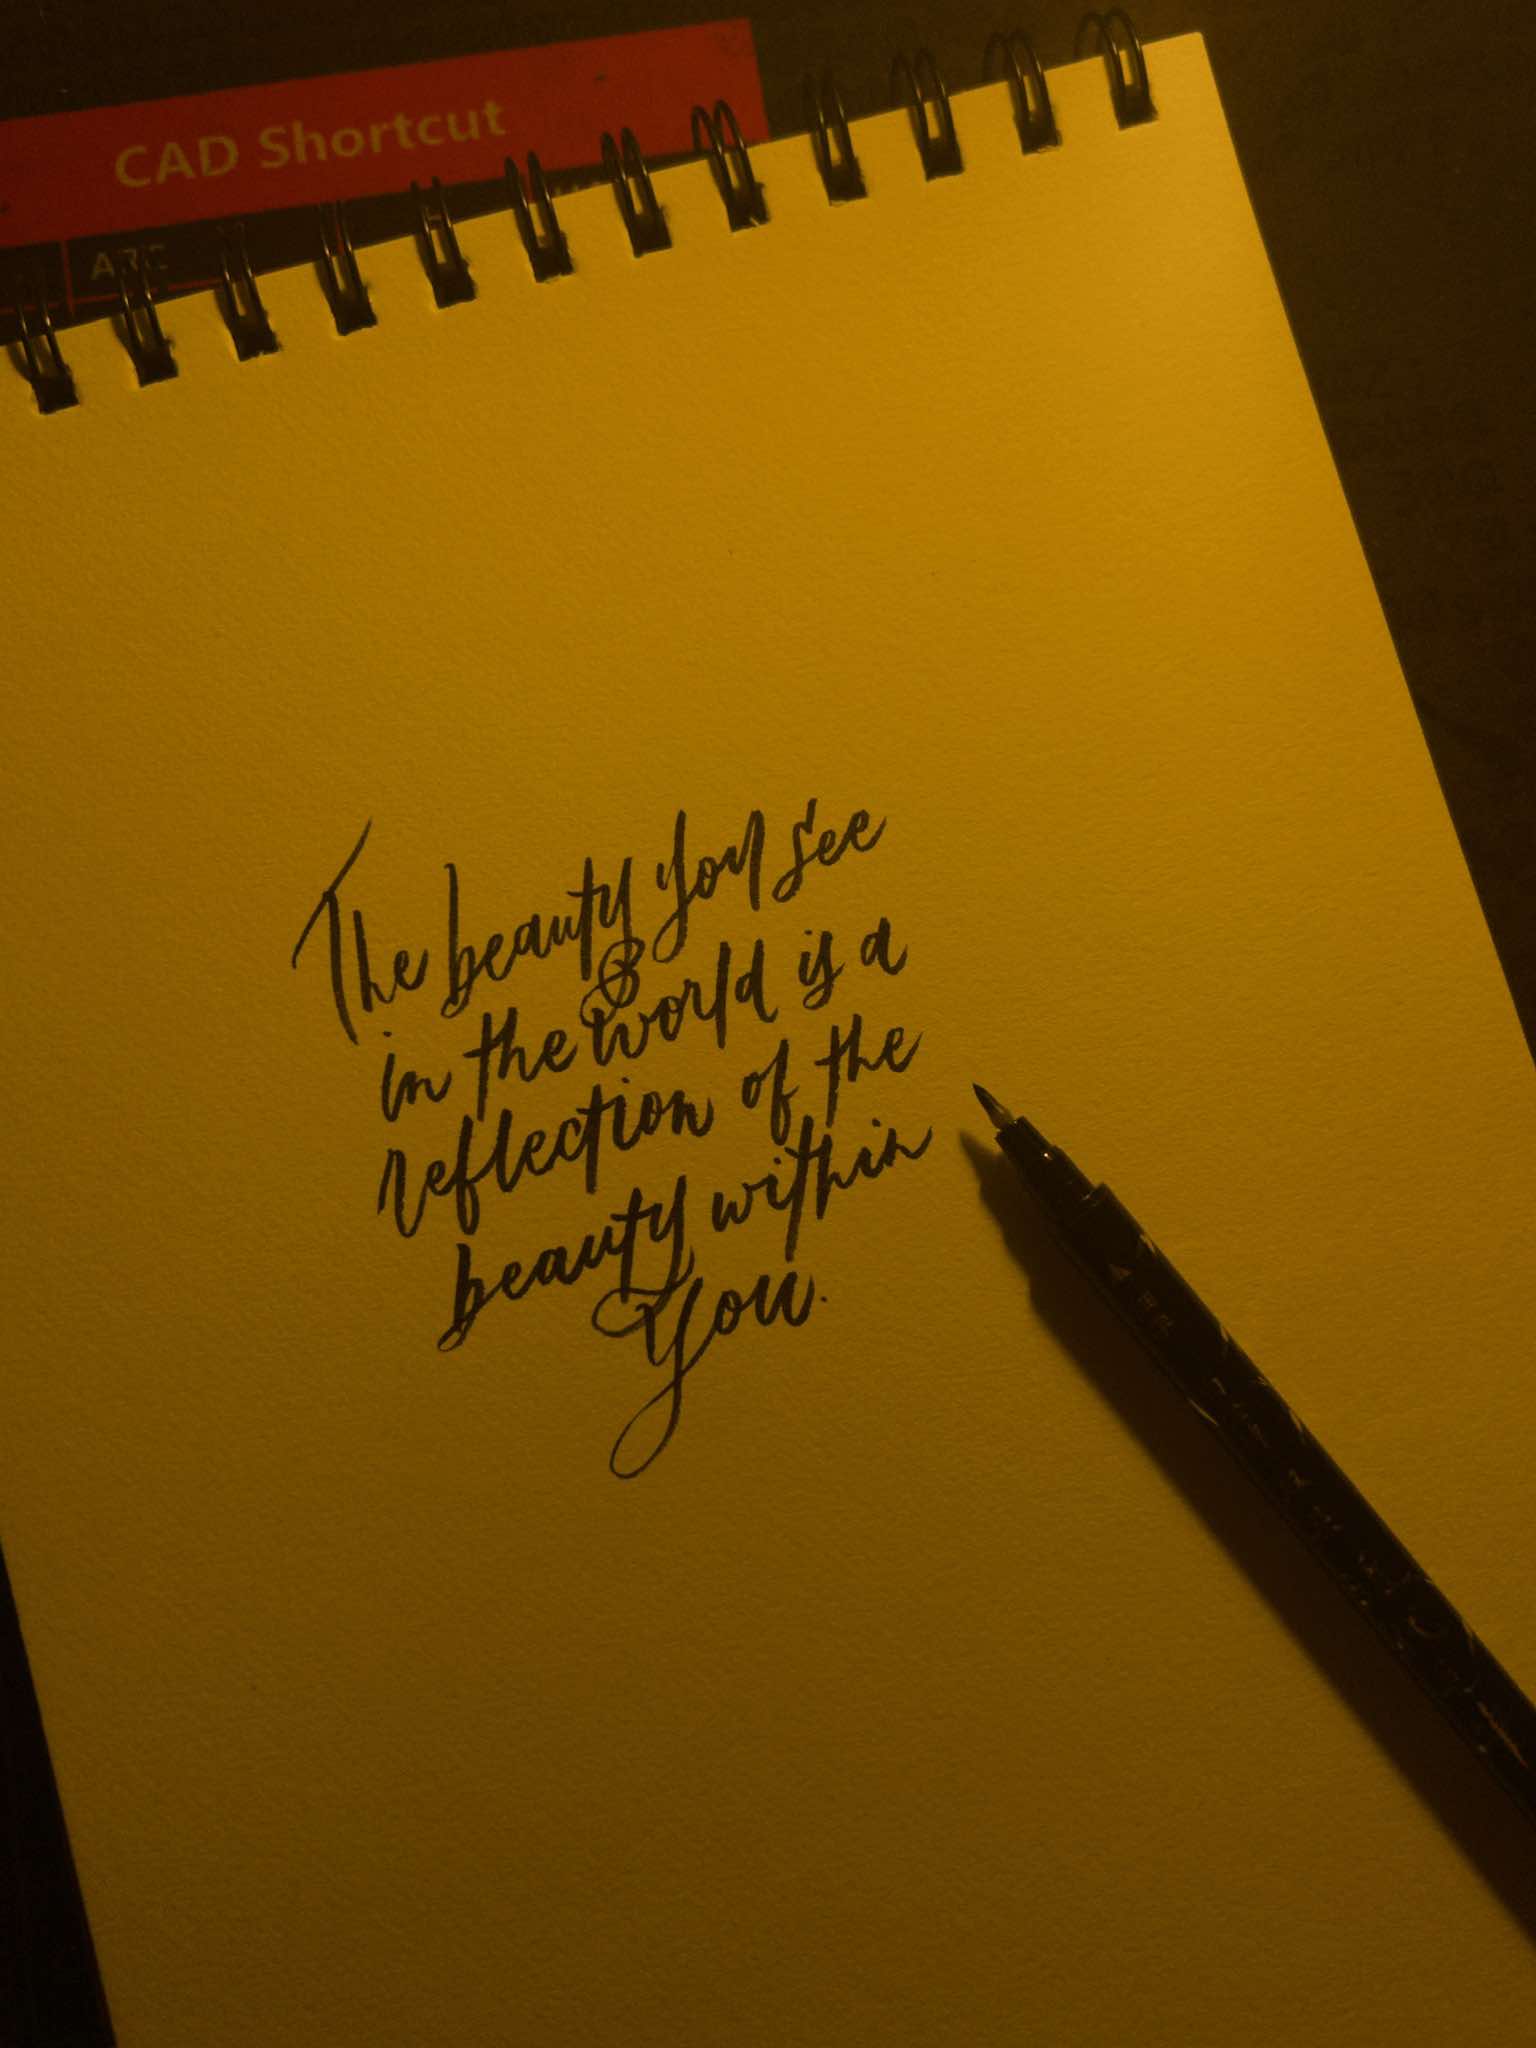 CAD Shortcut
ARC
The beauty you see
in the world is a
reflection of the
beauty within
you.